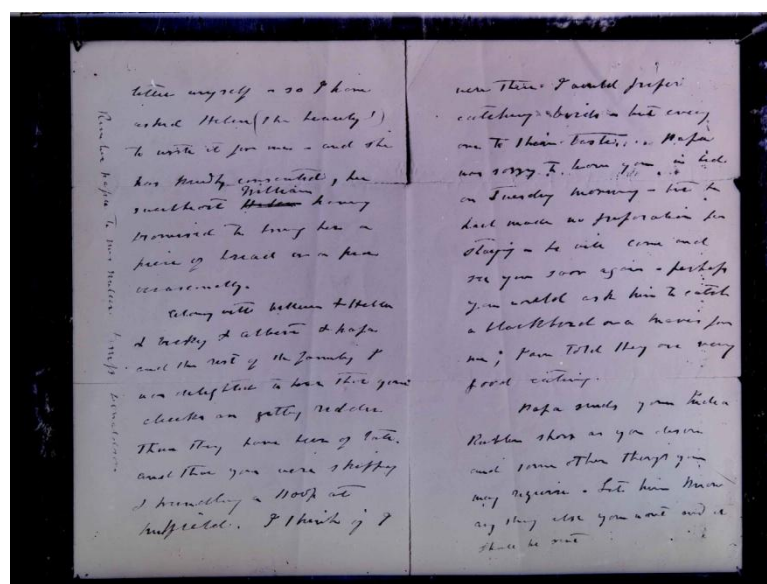 letter myself - so I have
asked Helen (the beauty!)
to write it for me - and she
has kindly consented, her
sweetheart Helen William having
promised to bring her a
piece of bread or a pea
occasionally.
Along with William & Helen
& Vicky & Albert & papa
and the rest of the family I
was delighted to hear that your
cheeks are getting redder
than they have been of late.
and that you were skipping
& trundling a Hoop at
I think if I
were there I would prefer
catching birds - but every
one to their taste. . . Papa
was sorry to leave you in bed
on Tuesday morning - but he
had made no preparation for
staying - he will come and
see you soon again - perhaps
you would ask him to catch
a blackbird or a mavis for
me; I am told they are very
good eating.
Papa sends your India
Rubber shoes as you desire
and some other things you
may require. Let him know
any thing else you want and it
shall be sent
Remember papa to
Donaldson